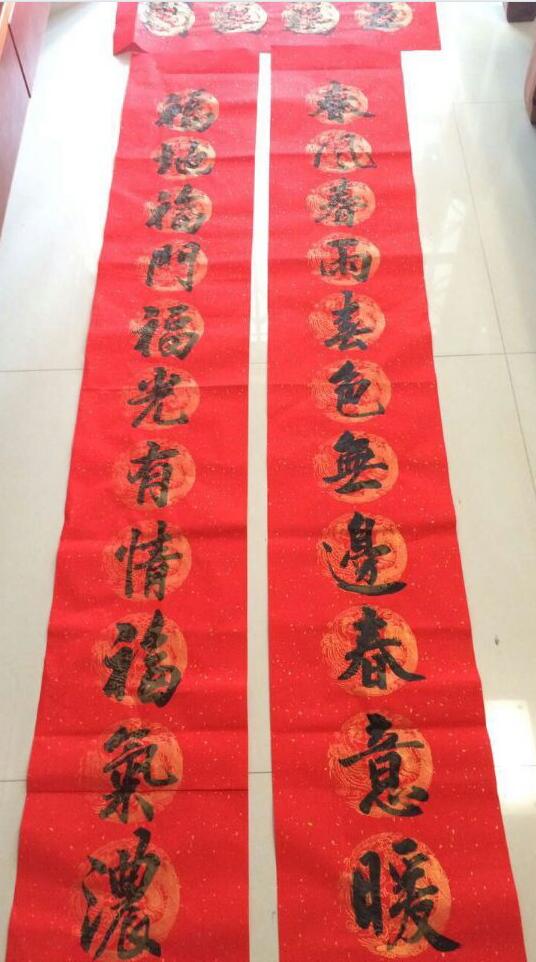 春風春雨春色無邊春意暖
福地福門福光有情福氣濃